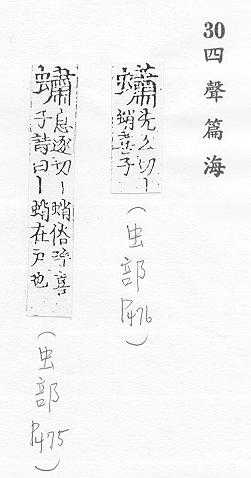 30四聲篇海
蠨先幺切丨
蛸蟢子
(虫部
P476)
蟰息逐切丨蛸俗呼喜
子詩曰丨蛸在戶也
(虫部
P475)